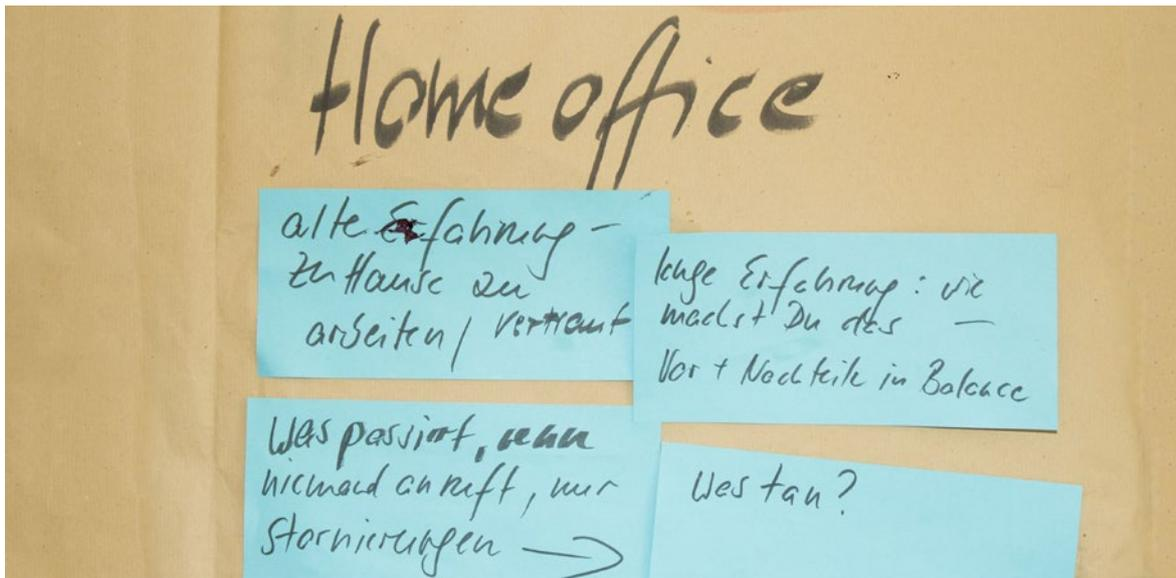 Homeoffice
alte Erfahrung –
zu Hause zu
arbeiten / vertraut
lange Erfahrung: wie
machst Du das —
Vor + Nachteile in Balance
Was passiert, wenn
niemand anruft, nur
Stornierungen →
Was tan?